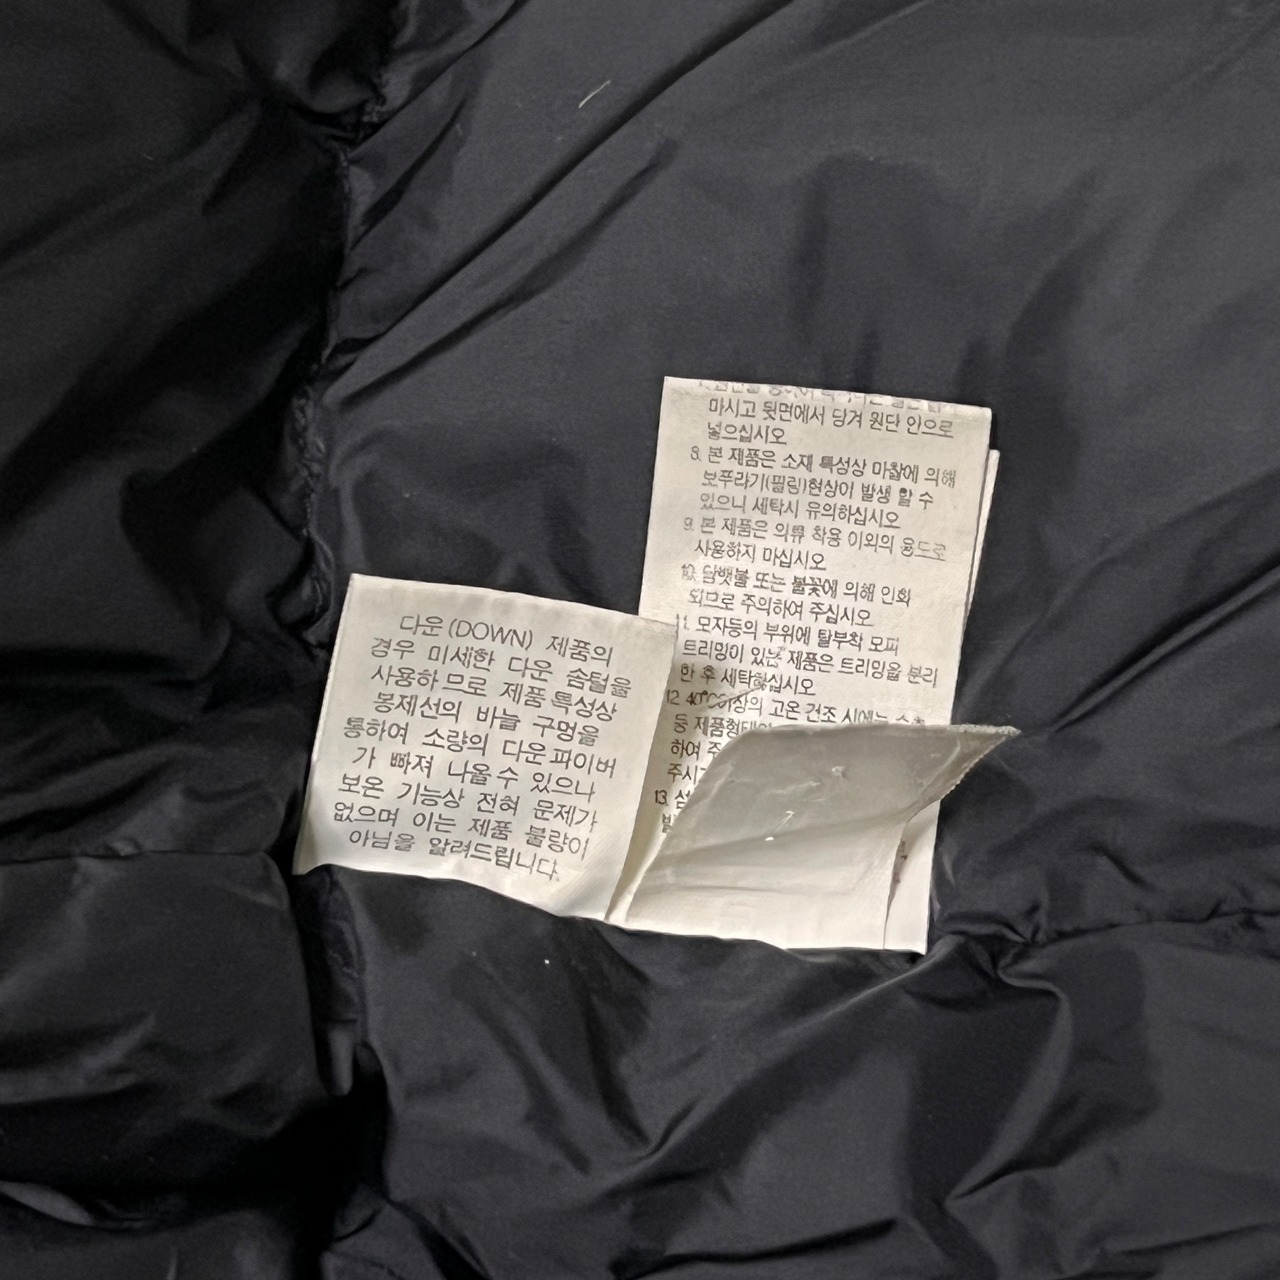 다운(DOWN) 제품의
경우 미세한 다운 솜털을
사용하므로 제품 특성상
봉제선의 바늘 구멍을
통하여 소량의 다운파이버
가 빠져 나올수 있으나
보온 기능상 전혀 문제가
없으며 이는 제품 불량이
아님을 알려드립니다.
마시고 뒷면에서 당겨 원단 안으로
넣으십시오
8. 본 제품은 소재 특성상 마찰에 의해
보푸라기(필링)현상이 발생 할 수
있으니 세탁시 유의하십시오
9. 본 제품은 의류 착용 이외의 용도로
사용하지 마십시오
10. 담뱃불 또는 불꽃에 의해 인화
되므로 주의하여 주십시오
11. 모자등의 부위에 탈부착 모피
트리밍이 있는 제품은 트리밍을 분리
한 후 세탁하십시오
12. 40℃이상의 고온 건조 시에는
등 제품형태
하여
주시
13.